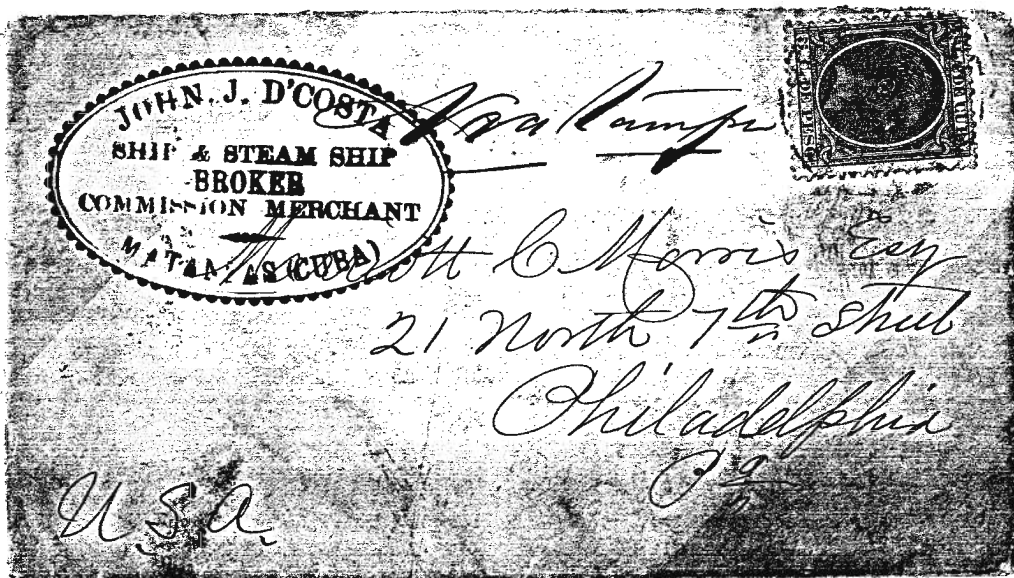 JOHN. J. D'COSTA
SHIP & STEAM SHIP
BROKER
COMMISSION MERCHANT
MATANZAS (CUBA)
Via Tampa
C Morris Esq
21 North 7th Street
Philadelphia
Pa
U.S.A.